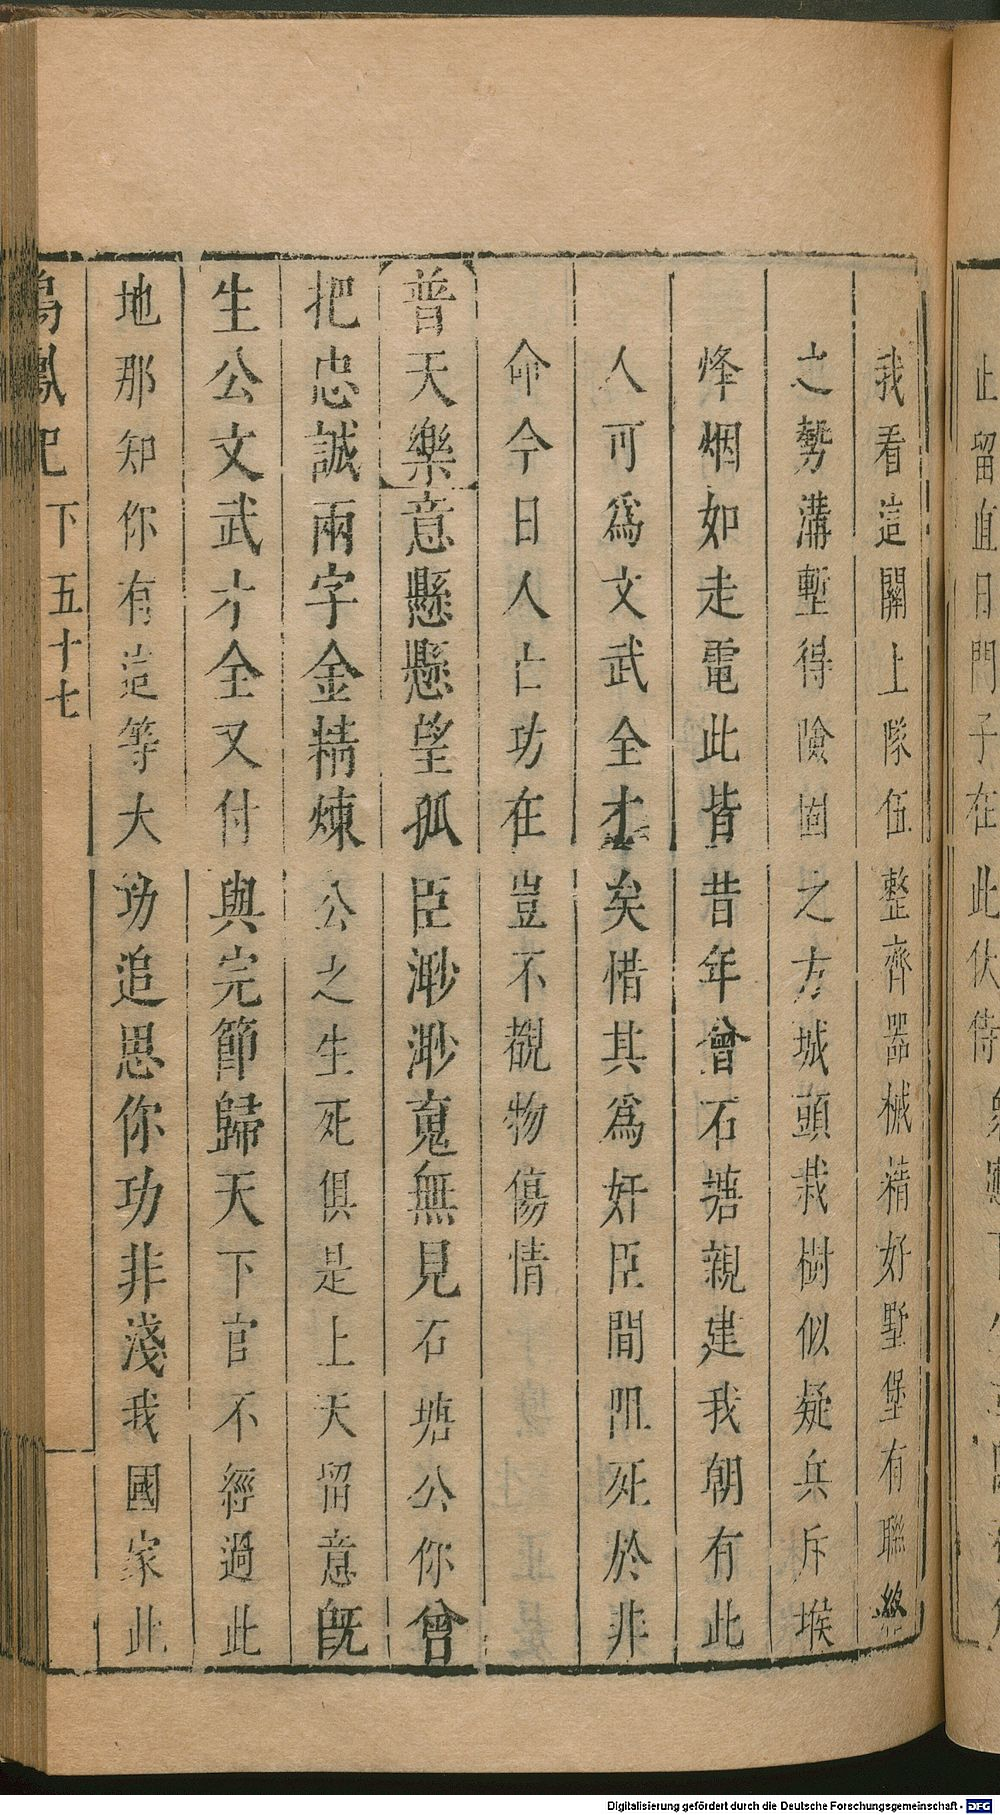 止留直日門子在此伏侍
我看這關上隊伍整齊器械精好墅堡有聯絡
之勢溝塹得險固之方城頭栽樹似疑兵斥堠
烽烟如走電此皆昔年曾石塘親建我朝有此
人可爲文武全才矣惜其爲奸臣間阻死於非
命今日人亡功在豈不觀物傷情
普天樂意懸懸望孤臣渺渺䰟無見石塘公你曾
把忠誠兩字金精煉公之生死俱是上天留意旣
生公文武才全又付與完節歸天下官不經過此
地那知你有這等大功追思你功非淺我國家此
鳳記 下 五十七
Digitalisierung gefördert durch die Deutsche Forschungsgemeinschaft - DFG